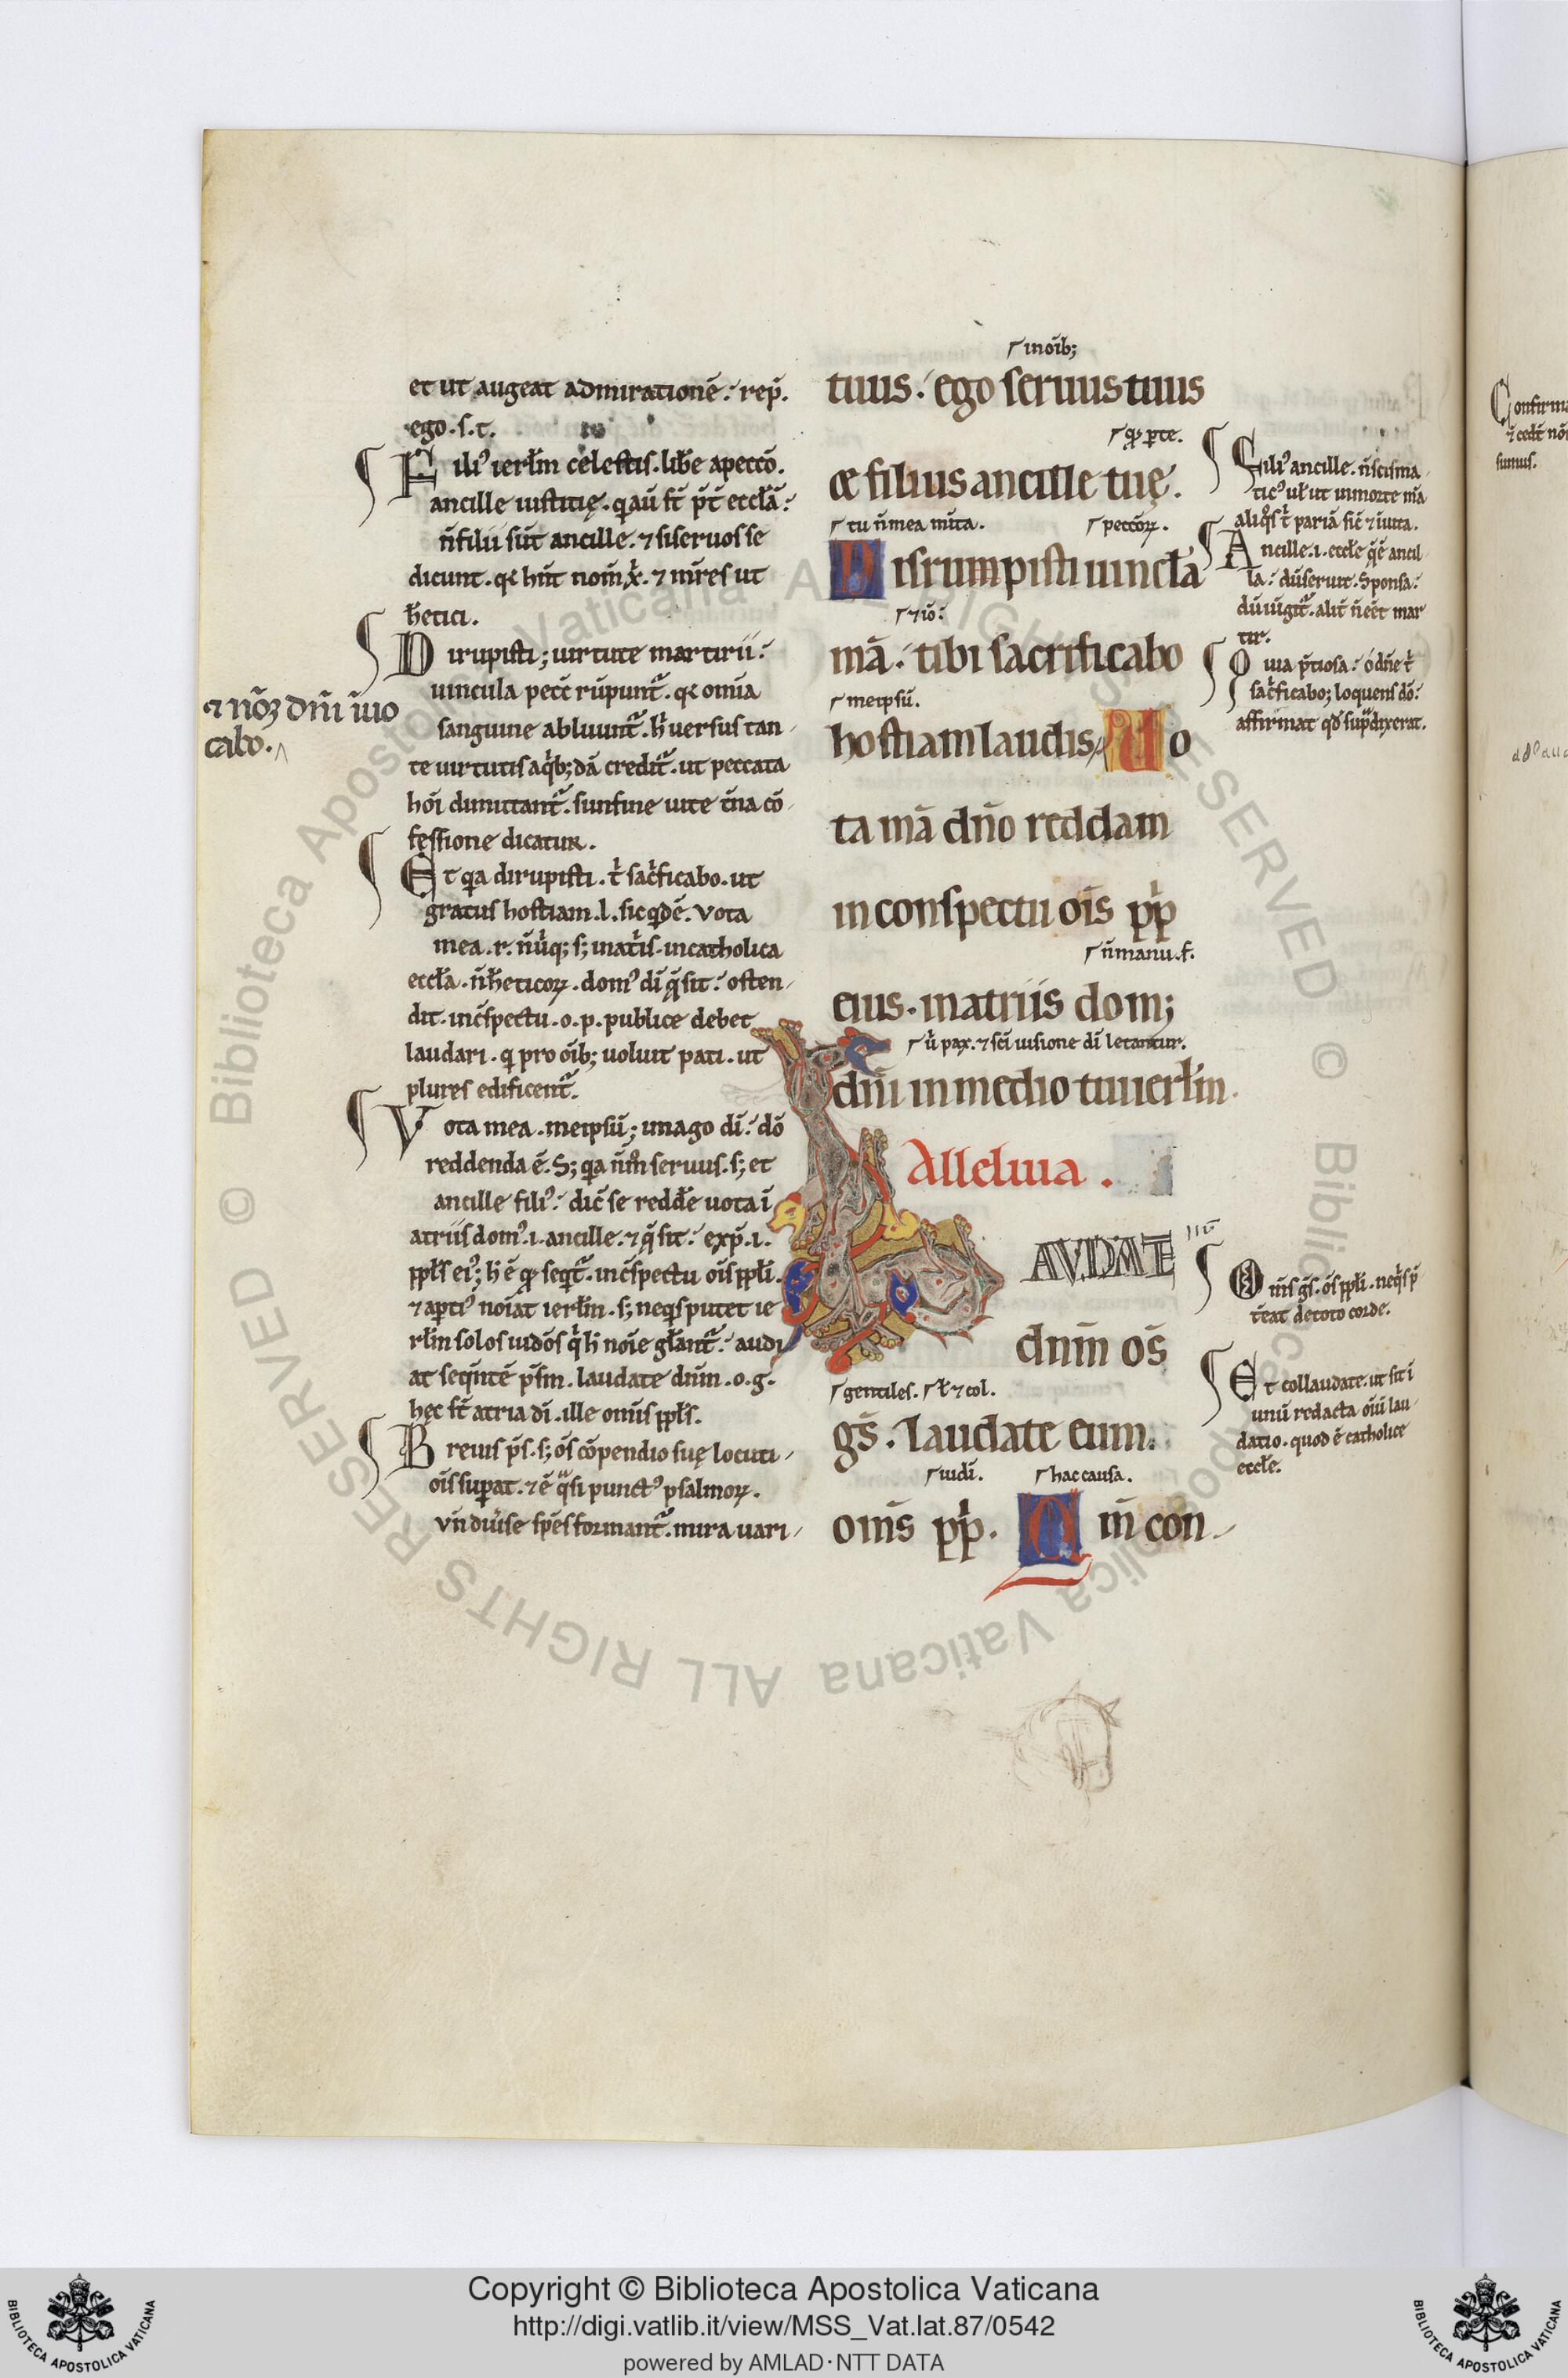 et ut augeat admirationē. rep̄.
ego .s.t.
Filiꝰ ierłm celestis. libē a peccō.
ancille iustitię. q̄ au ſt̄ p̄t̄ ecclā:
n̄ filii sūt ancille. ⁊ si seruos se
dicunt. qꝛ hn̄t nom̄ x̄. ⁊ mr̄es ut
h̄etici.
Dirupisti; uirtute martirii:
uincula pecc̄ rūpunt᷑. qꝛ om̄ia
sanguine abluunt᷑. h̄ uersus tan
te uirtutis a qͥb; dā credit᷑. ut peccata
hoī dimittant᷑. si in fine uite t̄na cō
fessione dicatur.
Et qa dirupisti. t̄ sac̄ficabo. ut
gratus hostiam .l. sic qdē. vota
mea .r. n̄ uͥq; s; in atͥis. in catholica
ecclā. n̄ h̄eticoꝝ. domꝰ dī q̄ sit: osten
dit. in c̄spectu .o.p. publice debet
laudari. q pro oīb; uoluit pati. ut
plures edificent᷑.
Vota mea. meipsū; imago dī: dō
reddenda ē. S; qa n̄ m̊ seruus. s; et
ancille filiꝰ: dic̄ se reddē uota ī
atriis domꝰ .i. ancille. ⁊ q̄ sit: exp̄ .i.
ppłs eiꝰ; h̄ ē qꝫ seqt᷑. in c̄spectu oīs ppłi.
⁊ aptiꝰ noīat ierłm. s; ne qͥs putet ie
rłm solos iudōs qͥ h̄ noīe głant᷑: audi
at seqn̄tē p̄sm. laudate dnm̄ .o.g.
hęc st̄ atria dī. ille om̄is ppłs.
Breuis p̄s. s; oēs cōpendio suę locuti
oīs supat. ⁊ ē q̄si punctꝰ psalmoꝝ.
vn̄ diuīse spēs formant᷑. mira uari
⁊ nōꝫ dn̄i īuo
cabo.
in oīb;
tuus. ego seruus tuus
qꝫ pte.
& filius ancille tuę.
tu n̄ mea mīta. peccōꝝ.
Disrumpisti uincła
⁊ iō:
mā. tibi sacrificabo
meipsū.
hostiam laudis Uo
ta mā dn̄o reddam
in conspectu oīs pp̄
n̄ manu. f.
eius. in atriis dom;
uͥ pax. ⁊ scī uisione dī letantur.
dn̄i in medio tui ierłm.
Alleluia.
LAVDATE
dnm̄ os̄
gentiles. ⁊ col.
gs̄. laudate eum.
iudī. hac causa.
om̄s pp̄. Qm̄ con
Filiꝰ ancille. n̄ scisma
ticꝰ uł ut in morte m̄a
aliqͥs t̄ pariā sic̄ ⁊ iuita.
Ancille .i. eccłe q̄ ē ancil
la: dū seruit. Sponsa:
dū iūgit᷑. alit̄ n̄ eēt mar
tir.
Quia p̄tiosa: o dn̄e t̄
sac̄ficabo; loquens dō:
affirmat qd sup̄ dixerat.
Om̄s gs̄. oēs ppłi. ne qͥs p̄
tēat de toto corde.
Et collaudate. ut sit ī
unū redacta oīū lau
datio. quod ē catholice
eccłe.
Confirma
sumus.
Copyright © Biblioteca Apostolica Vaticana
http://digi.vatlib.it/view/MSS_Vat.lat.87/0542
powered by AMLAD·NTT DATA
BIBLIOTECA APOSTOLICA VATICANA
BIBLIOTECA APOSTOLICA VATICANA
© Biblioteca Apostolica Vaticana ALL RIGHTS RESERVED © Biblioteca Apostolica Vaticana ALL RIGHTS RESERVED